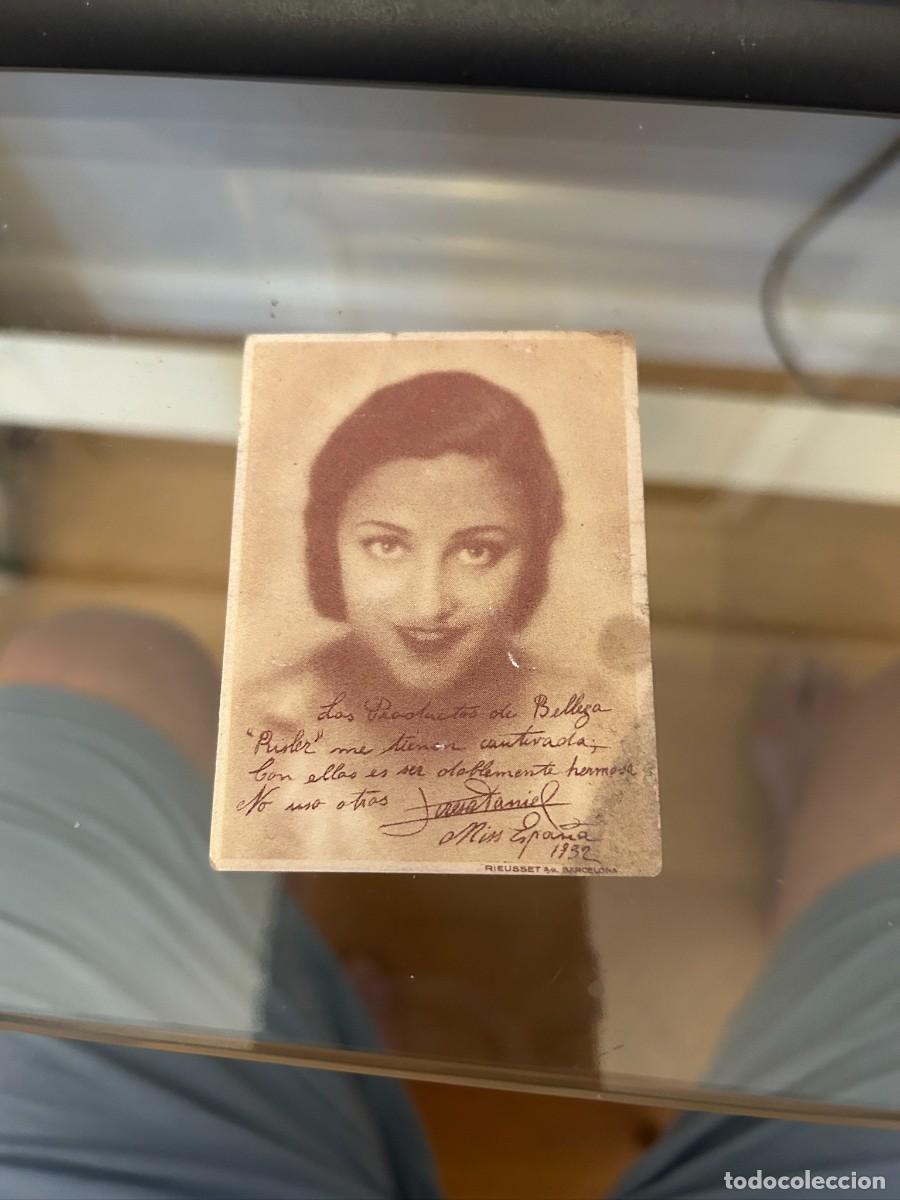 Los Productos de Belleza
"Risler" me tienen cautivada;
Con ellos es ser doblemente hermosa
No uso otros Teresa Daniel
Miss España
1932
RIEUSSET S.A. BARCELONA
todocoleccion